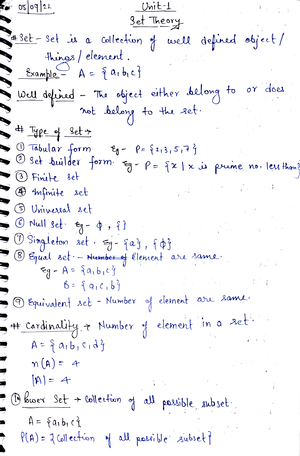 05/09/22
Unit-1
Set Theory
* Set - Set is a collection of well defined object/
things/element.
Example - A = {a,b,c}
Well defined - The object either belong to or does
not belong to the set.
# Type of Set →
① Tabular form Eg - P = {2,3,5,7}
② Set builder form. Eg - P = {x | x is prime no. less than
③ Finite set
④ Infinite set
⑤ Universal set
⑥ Null set. Eg - ϕ, {}
⑦ Singleton set. Eg - {a}, {ϕ}
⑧ Equal set. - Element are same.
Eg - A = {a,b,c}
B = {a,c,b}
⑨ Equivalent set - Number of element are same.
# Cardinality → Number of element in a set.
A = {a,b,c,d}
n(A) = 4
|A| = 4
⑩ Power Set → Collection of all possible subset.
A = {a,b,c}
P(A) = {Collection of all possible subset}